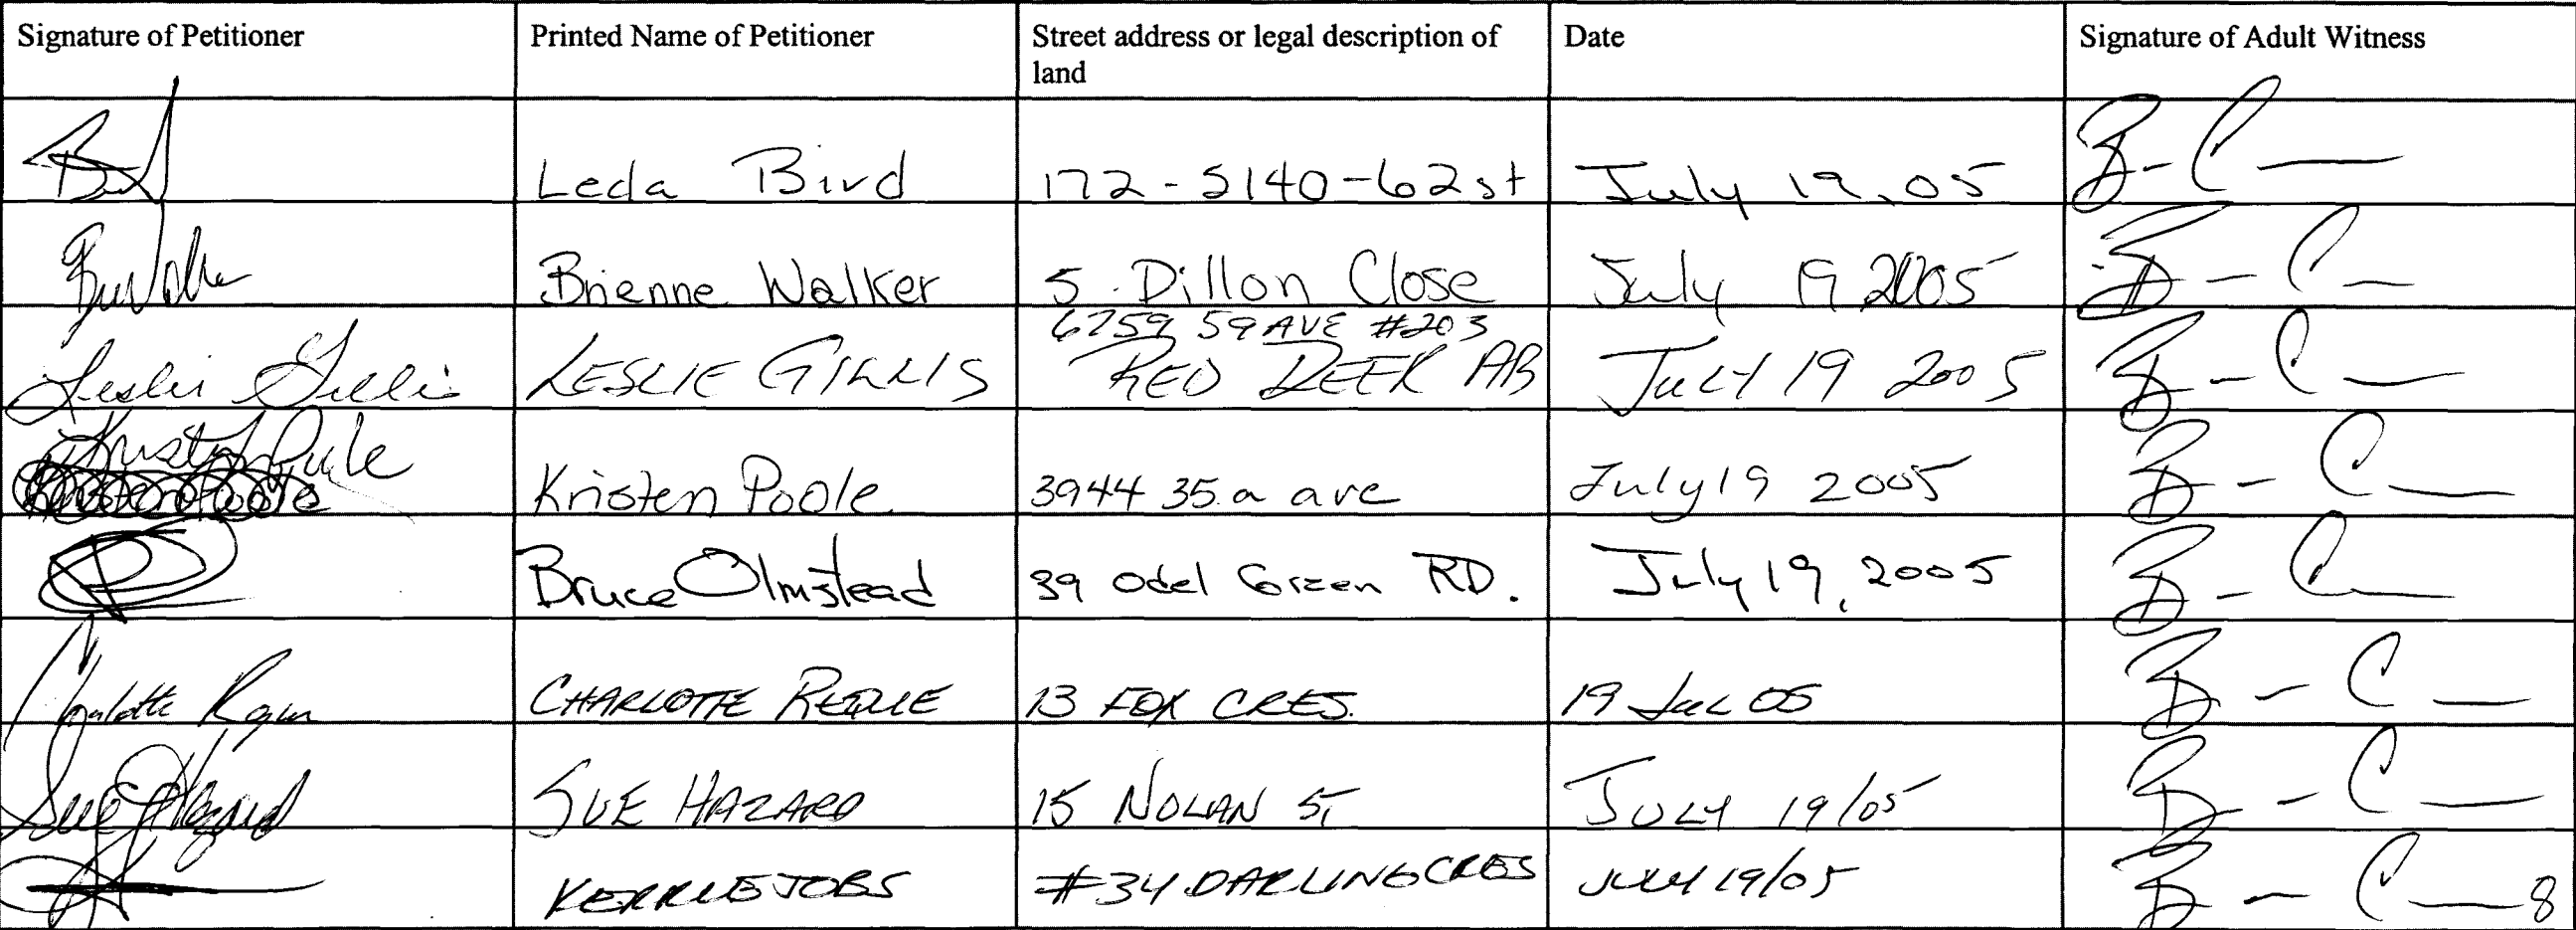 Signature of Petitioner Printed Name of Petitioner Street address or legal description of land Date Signature of Adult Witness
Leda Bird 172-5140-62st July 19, 05
Brienne Walker 5 Dillon Close July 19 2005
Leslie Gillis LESLIE GILLIS 6759 59 AVE #203 RED DEER AB JULY 19 2005
Kristen Poole 3944 35 a ave July 19 2005
Bruce Olmstead 39 Odel Green RD. July 19, 2005
CHARLOTTE 13 FOX CRES. 19 Jul 05
Sue Hazard SUE HAZARD 15 NOLAN ST JULY 19/05
KERRIE JOBS #34 DARLING CRES JULY 19/05
8